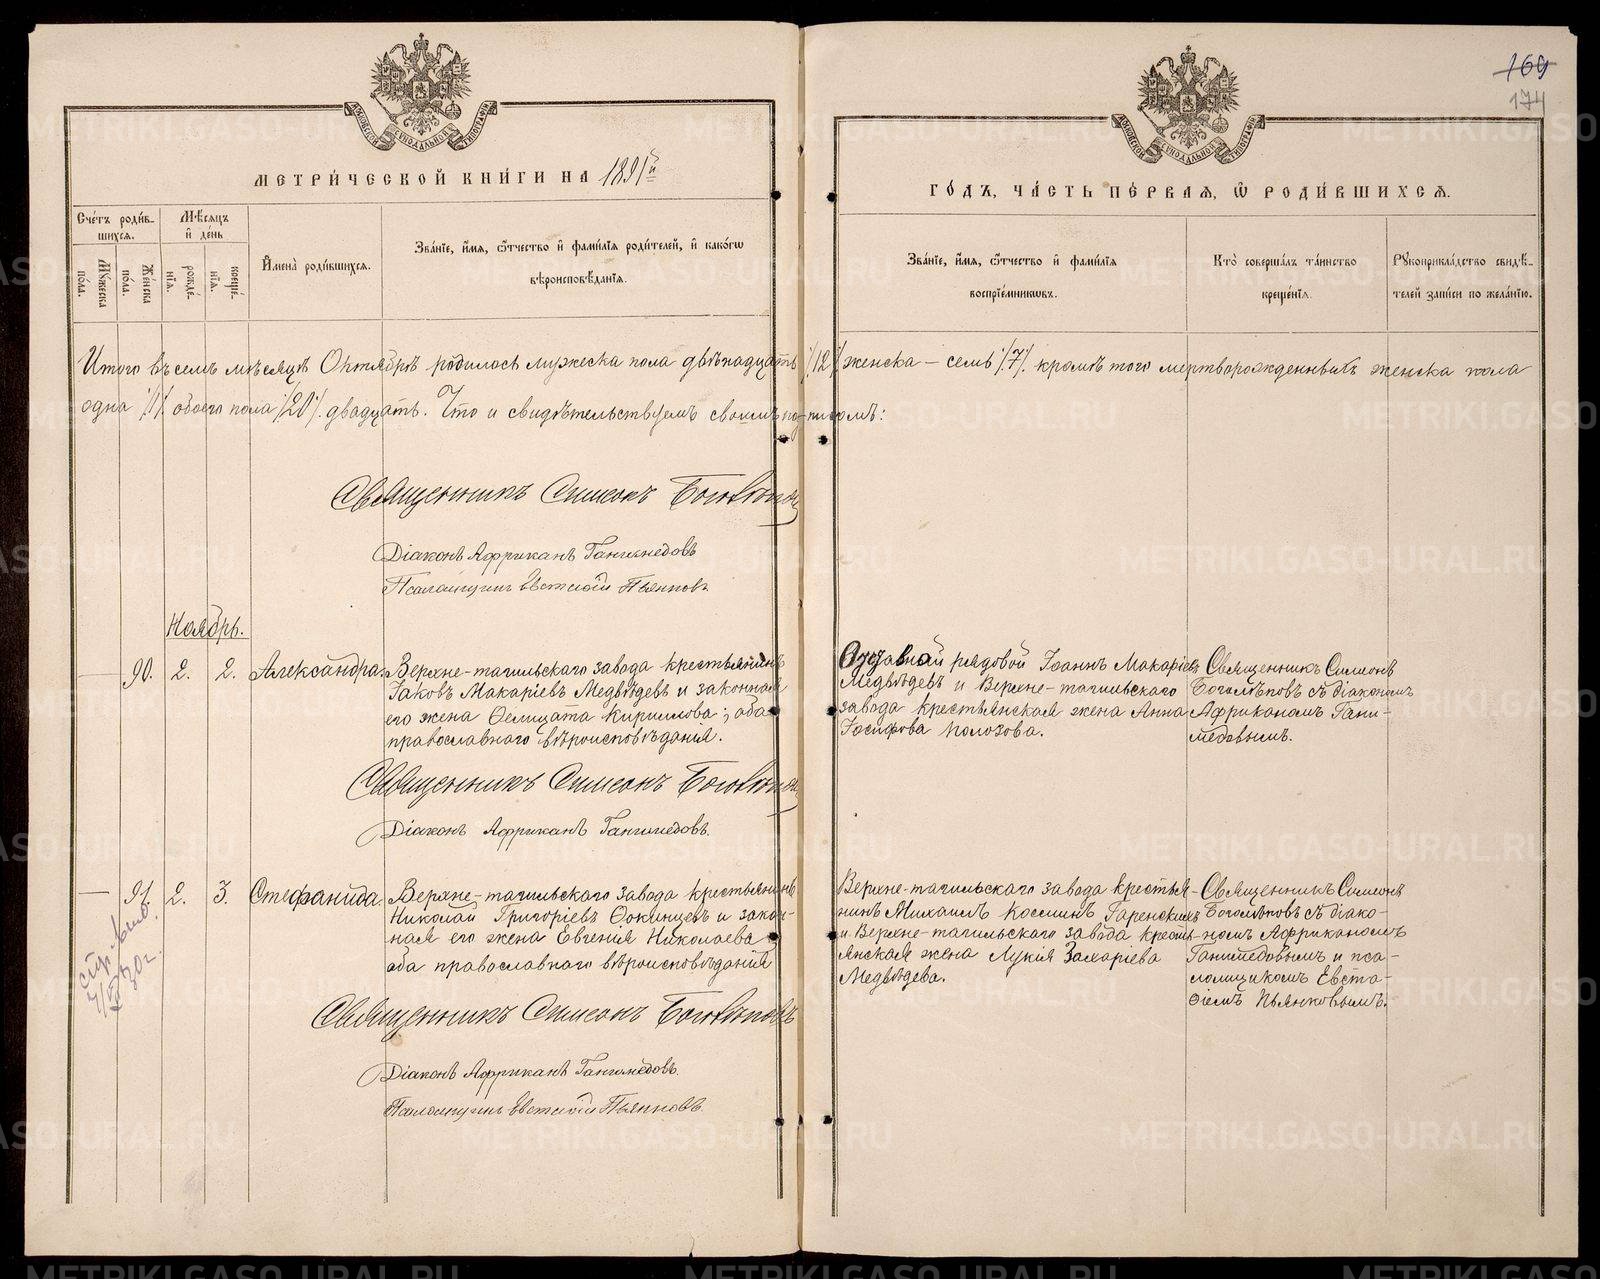 169
174
МОСКОВСКОЙ СѴНОДАЛЬНОЙ ТИПОГРАФІИ
МОСКОВСКОЙ СѴНОДАЛЬНОЙ ТИПОГРАФІИ
МЕТРИ́ЧЕСКОЙ КНИ́ГИ НА 1891й
ГО́ДЪ, ЧА́СТЬ ПЕ́РВАЯ, Ѡ҆ РОДИ́ВШИХСЯ.
Сче́тъ роди́в-
шихся.
Му́жеска
по́ла.
Же́нска
по́ла.
Мѣ́сяцъ
и҆ де́нь
рожде́-
нїя.
креще́-
нїя.
И҆мена̀ роди́вшихся.
Зва́нїе, и҆́мя, ѻ҆́тчество и҆ фами́лїя роди́телей, и҆ како́гѡ
вѣроисповѣ́данїя.
Зва́нїе, и҆́мя, ѻ҆́тчество и҆ фами́лїя
воспрїе́мникѡвъ.
Кто̀ соверша́лъ та́инство
креще́нїя.
Рꙋкоприкла́дство свидѣ́-
телей за́писи по жела́нїю.
Итого въ семъ мѣсяцѣ Октябрѣ родилось мужеска пола двѣнадцать /12/ женска – семь /7/. кромѣ того мертворожденныхъ женска пола
одна /1/. обоего пола /20/. двадцать. Что и свидѣтельствуемъ своимъ подписомъ:
Священникъ Симеонъ Боголѣповъ
Діаконъ Африканъ Ганимедовъ
Псаломщикъ Евстаѳій Пьянковъ.
Ноябрь.
— 90. 2. 2. Александра.
Верхне-тагильскаго завода крестьянинъ
Іаковъ Макаріевъ Медвѣдевъ и законная
его жена Ѳелицата Кириллова; оба
православнаго вѣроисповѣданія.
Отставной рядовой Іоаннъ Макаріевъ
Медвѣдевъ и Верхне-тагильскаго
завода крестьянская жена Анна
Іосифова Полозова.
Священникъ Симеонъ
Боголѣповъ съ діакономъ
Африканомъ Гани-
медовымъ.
Священникъ Симеонъ Боголѣповъ
Діаконъ Африканъ Ганимедовъ.
— 91. 2. 3. Стефанида.
Верхне-тагильскаго завода крестьянинъ
Николай Григоріевъ и закон-
ная его жена Евгенія Николаева
оба православнаго вѣроисповѣданія
Верхне-тагильскаго завода крестья-
нинъ Михаилъ Косминъ
и Верхне-тагильскаго завода кресть-
янская жена Лукія Захаріева
Медвѣдева.
Священникъ Симеонъ
Боголѣповъ съ діако-
номъ Африканомъ
Ганимедовымъ и пса-
ломщикомъ Евста-
ѳіемъ Пьянковымъ.
Священникъ Симеонъ Боголѣповъ
Діаконъ Африканъ Ганимедовъ.
Псаломщикъ Евстаѳій Пьянковъ.
METRIKI.GASO-URAL.RU